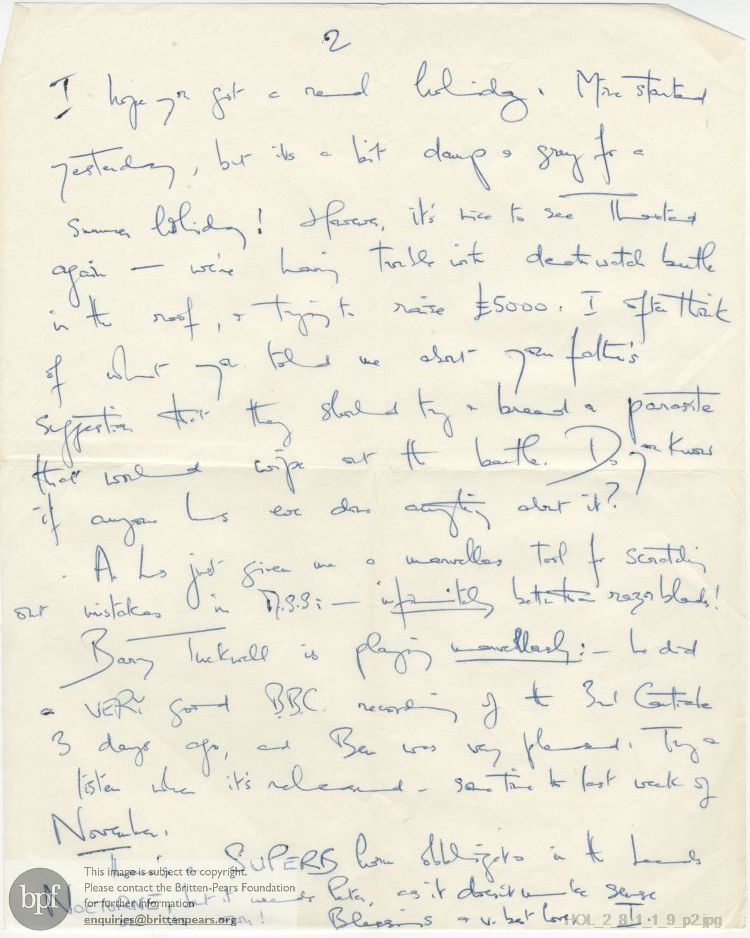 2
I hope you got a real holiday. Mine started
yesterday, but it's a bit damp & grey for a
summer holiday! However, it's nice to see Thaxted
again — we're having trouble with death watch beetle
in the roof, & trying to raise £5000. I often think
of what you told me about your father's
suggestion that they should try & breed a parasite
that would wipe out the beetle. Do you know
if anyone has ever done anything about it?
A. has just given me a marvellous tool for scratching
out mistakes in M.S.S: — infinitely better than razor blades!
Barry Tuckwell is playing marvellously: — he did
a VERY good B.B.C. recording of the 3rd Canticle
3 days ago, and Ben was very pleased. Try &
listen when it's released — some time the last week of
November.
There is a SUPERB horn obbligato in the
NOCTURNE, but it needs Peter, as it doesn't make sense
Blessings & v. best love I.
bpf
This image is subject to copyright.
Please contact the Britten-Pears Foundation
for further information
enquiries@brittenpears.org
HOL_2_8_1_1_9_p2.jpg